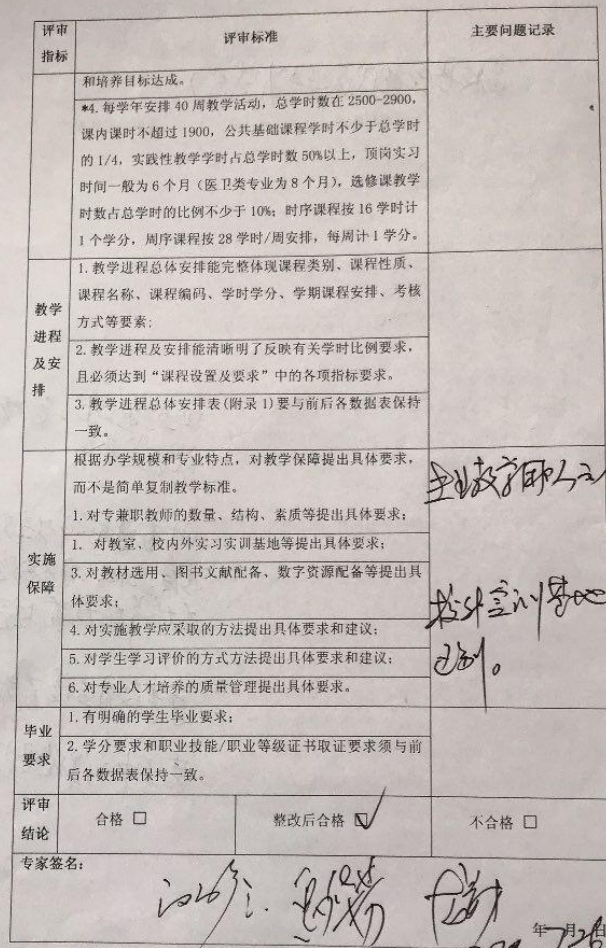 评审
指标
评审标准
主要问题记录
和培养目标达成。
*4.每学年安排 40 周教学活动，总学时数在 2500-2900,
课内课时不超过 1900，公共基础课程学时不少于总学时
的 1/4，实践性教学学时占总学时数 50%以上，顶岗实习
时间一般为 6 个月（医卫类专业为 8 个月），选修课教学
时数占总学时的比例不少于 10%；时序课程按 16 学时计
1 个学分，周序课程按 28 学时/周安排，每周计 1 学分。
教学
进程
及安
排
1.教学进程总体安排能完整体现课程类别、课程性质、
课程名称、课程编码、学时学分、学期课程安排、考核
方式等要素；
2.教学进程及安排能清晰明了反映有关学时比例要求，
且必须达到“课程设置及要求”中的各项指标要求。
3.教学进程总体安排表(附录 1)要与前后各数据表保持
一致。
实施
保障
根据办学规模和专业特点，对教学保障提出具体要求，
而不是简单复制教学标准。
1.对专兼职教师的数量、结构、素质等提出具体要求；
1. 对教室、校内外实习实训基地等提出具体要求；
3.对教材选用、图书文献配备、数字资源配备等提出具
体要求；
4.对实施教学应采取的方法提出具体要求和建议；
5.对学生学习评价的方式方法提出具体要求和建议；
6.对专业人才培养的质量管理提出具体要求。
校外实训基地
毕业
要求
1.有明确的学生毕业要求；
2.学分要求和职业技能/职业等级证书取证要求须与前
后各数据表保持一致。
评审
结论
合格 □
整改后合格 ☑
不合格 □
专家签名：
年 7月 日